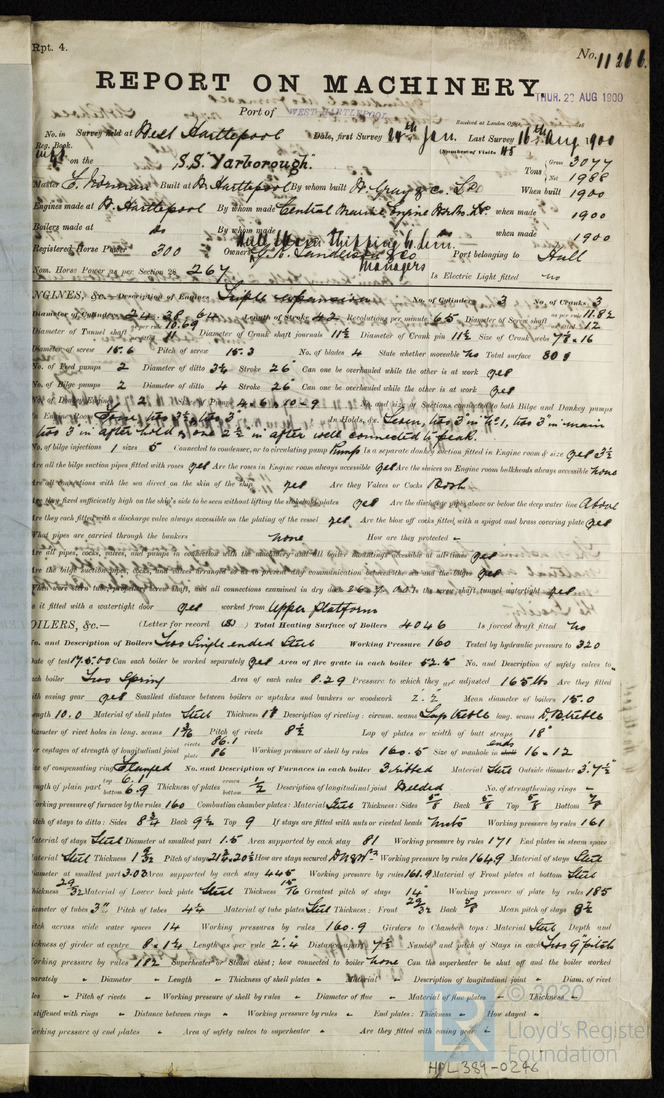 Rpt. 4.
No. 11266.
REPORT ON MACHINERY
Port of WEST HARTLEPOOL
THUR. 23 AUG 1900
Received at London Office
No. in Survey held at West Hartlepool Date, first Survey 24th Jan. Last Survey 16th Aug 1900
Reg. Book.
(Number of Visits 45
on the S.S. Yarborough.
Tons Gross 3077
Net 1988
Master Built at W. Hartlepool By whom built W. Gray & Co. Ld When built 1900
Engines made at W. Hartlepool By whom made Central Marine Engine Works when made 1900
Boilers made at do By whom made do when made 1900
Registered Horse Power 300 Owners Port belonging to Hull
Managers
Nom. Horse Power as per Section 28 267 Is Electric Light fitted no
ENGINES, &c. Description of Engines Triple expansion No. of Cylinders 3 No. of Cranks 3
Diameter of Cylinders 24 38 64 Length of Stroke 42 Revolutions per minute 65 Diameter of Screw shaft as per rule 11.82
12
Diameter of Tunnel shaft as per rule 10.69
11 Diameter of Crank shaft journals 11½ Diameter of Crank pin 11½ Size of Crank webs 7⅞ × 16
Diameter of screw 15.6 Pitch of screw 15.3 No. of blades 4 State whether moveable no Total surface
No. of Feed pumps 2 Diameter of ditto 3½ Stroke 26" Can one be overhauled while the other is at work yes
No. of Bilge pumps 2 Diameter of ditto 4 Stroke 26 Can one be overhauled while the other is at work yes
No. of Donkey Engines 2 Sizes of Pumps No. and size of Suctions connected to both Bilge and Donkey pumps
In Engine Room Four, two 3½, two 3" In Holds, &c. Seven, two 3" in No 1, two 3" in main
two 3" in after hold & one 2½ in after well connected to peak.
No. of bilge injections 1 sizes 5 Connected to condenser, or to circulating pump Pump Is a separate donkey suction fitted in Engine room & size yes 3½
Are all the bilge suction pipes fitted with roses yes Are the roses in Engine room always accessible yes Are the sluices on Engine room bulkheads always accessible none
Are all connections with the sea direct on the skin of the ship yes Are they Valves or Cocks Both
Are they fixed sufficiently high on the ship's side to be seen without lifting the stokehold plates yes Are the discharge pipes above or below the deep water line Above
Are they each fitted with a discharge valve always accessible on the plating of the vessel yes Are the blow off cocks fitted with a spigot and brass covering plate yes
What pipes are carried through the bunkers none How are they protected -
Are all pipes, cocks, valves, and pumps in connection with the machinery and all boiler mountings accessible at all times yes
Are the bilge suction pipes, cocks, and valves arranged so as to prevent any communication between the sea and the bilges yes
When were stern tube, propeller, screw shaft, and all connections examined in dry dock Is the screw shaft tunnel watertight yes
Is it fitted with a watertight door yes worked from Upper Platform
BOILERS, &c.— (Letter for record (S)) Total Heating Surface of Boilers 4046 Is forced draft fitted no
No. and Description of Boilers Two Single ended Steel Working Pressure 160 Tested by hydraulic pressure to 320
Date of test 17.5.00 Can each boiler be worked separately yes Area of fire grate in each boiler 52.5 No. and Description of safety valves to
each boiler Two Spring Area of each valve 8.29 Pressure to which they are adjusted 165 lbs Are they fitted
with easing gear yes Smallest distance between boilers or uptakes and bunkers or woodwork 2.½ Mean diameter of boilers 15.0
Length 10.0 Material of shell plates Steel Thickness Description of riveting: circum. seams Lap treble long. seams D.B. treble
Diameter of rivet holes in long. seams Pitch of rivets 8½ Lap of plates or width of butt straps 18"
Per centages of strength of longitudinal joint rivets 86.1
plate 86 Working pressure of shell by rules 160.5 Size of manhole in ends 16 × 12
Size of compensating ring Flanged No. and Description of Furnaces in each boiler 3 ribbed Material Steel Outside diameter 3.7½"
Length of plain part top 6.9
bottom 6.9 Thickness of plates crown ½
bottom Description of longitudinal joint Welded No. of strengthening rings -
Working pressure of furnace by the rules 160 Combustion chamber plates: Material Steel Thickness: Sides ⅝ Back ⅝ Top ⅝ Bottom ⅞
Pitch of stays to ditto: Sides 8¾ Back 9½ Top 9 If stays are fitted with nuts or riveted heads Nuts Working pressure by rules 161
Material of stays Steel Diameter at smallest part 1.5 Area supported by each stay 81 Working pressure by rules 171 End plates in steam space
Material Steel Thickness Pitch of stays How are stays secured Working pressure by rules 164.9 Material of stays Steel
Diameter at smallest part 3.03 Area supported by each stay 445 Working pressure by rules 161.9 Material of Front plates at bottom Steel
Thickness 29/32 Material of Lower back plate Steel Thickness 15/16 Greatest pitch of stays 14" Working pressure of plate by rules 185
Diameter of tubes 3" Pitch of tubes 4¼ Material of tube plates Steel Thickness: Front 29/32 Back ⅝ Mean pitch of stays 8½
Pitch across wide water spaces 14 Working pressures by rules 160.9 Girders to Chamber tops: Material Steel Depth and
thickness of girder at centre Length as per rule 2.4 Distance apart 7½ Number and pitch of Stays in each Two 9" pitch
Working pressure by rules 182 Superheater or Steam chest; how connected to boiler none Can the superheater be shut off and the boiler worked
separately Diameter Length Thickness of shell plates Material Description of longitudinal joint Diam. of rivet
holes Pitch of rivets Working pressure of shell by rules Diameter of flue Material of flue plates Thickness
If stiffened with rings Distance between rings Working pressure by rules End plates: Thickness How stayed
Working pressure of end plates Area of safety valves to superheater Are they fitted with easing gear
© 2020
Lloyd's Register
Foundation
HPL389-0246